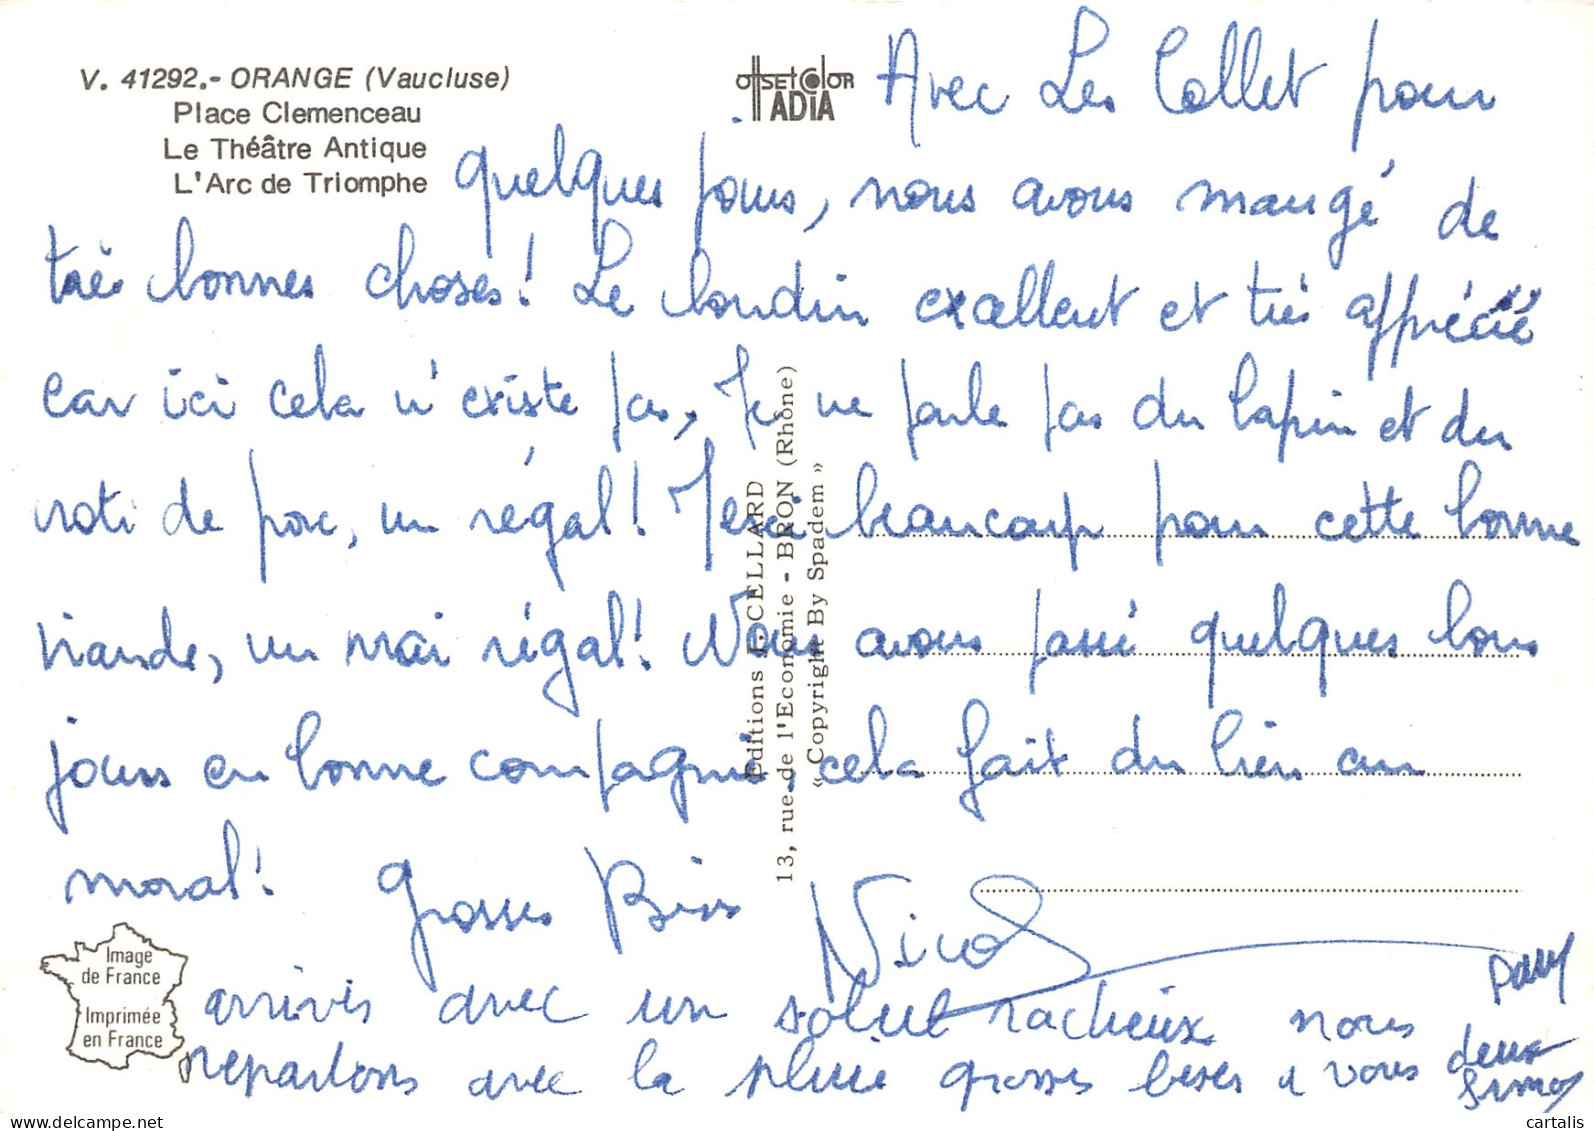 V. 41292.- ORANGE (Vaucluse)
Place Clemenceau
Le Théâtre Antique
L'Arc de Triomphe
OffsetColor
IADIA
Avec Les Collet pour
quelques jours, nous avons mangé de
très bonnes choses! Le boudin excellent et très apprécié
car ici cela n'existe pas, Je ne parle pas du lapin et du
roti de porc, un régal! Merci beaucoup pour cette bonne
viande, un vrai régal! Nous avons passé quelques bons
jours en bonne compagnie, cela fait du bien au
moral! Grosses Bises
arrivés avec un soleil radieux nous
repartons avec la pluie grosses beses a vous deux
Editions E. CELLARD
13, rue de l'Economie - BRON (Rhône)
« Copyright By Spadem »
Image
de France
Imprimée
en France
cartalis
www.delcampe.net